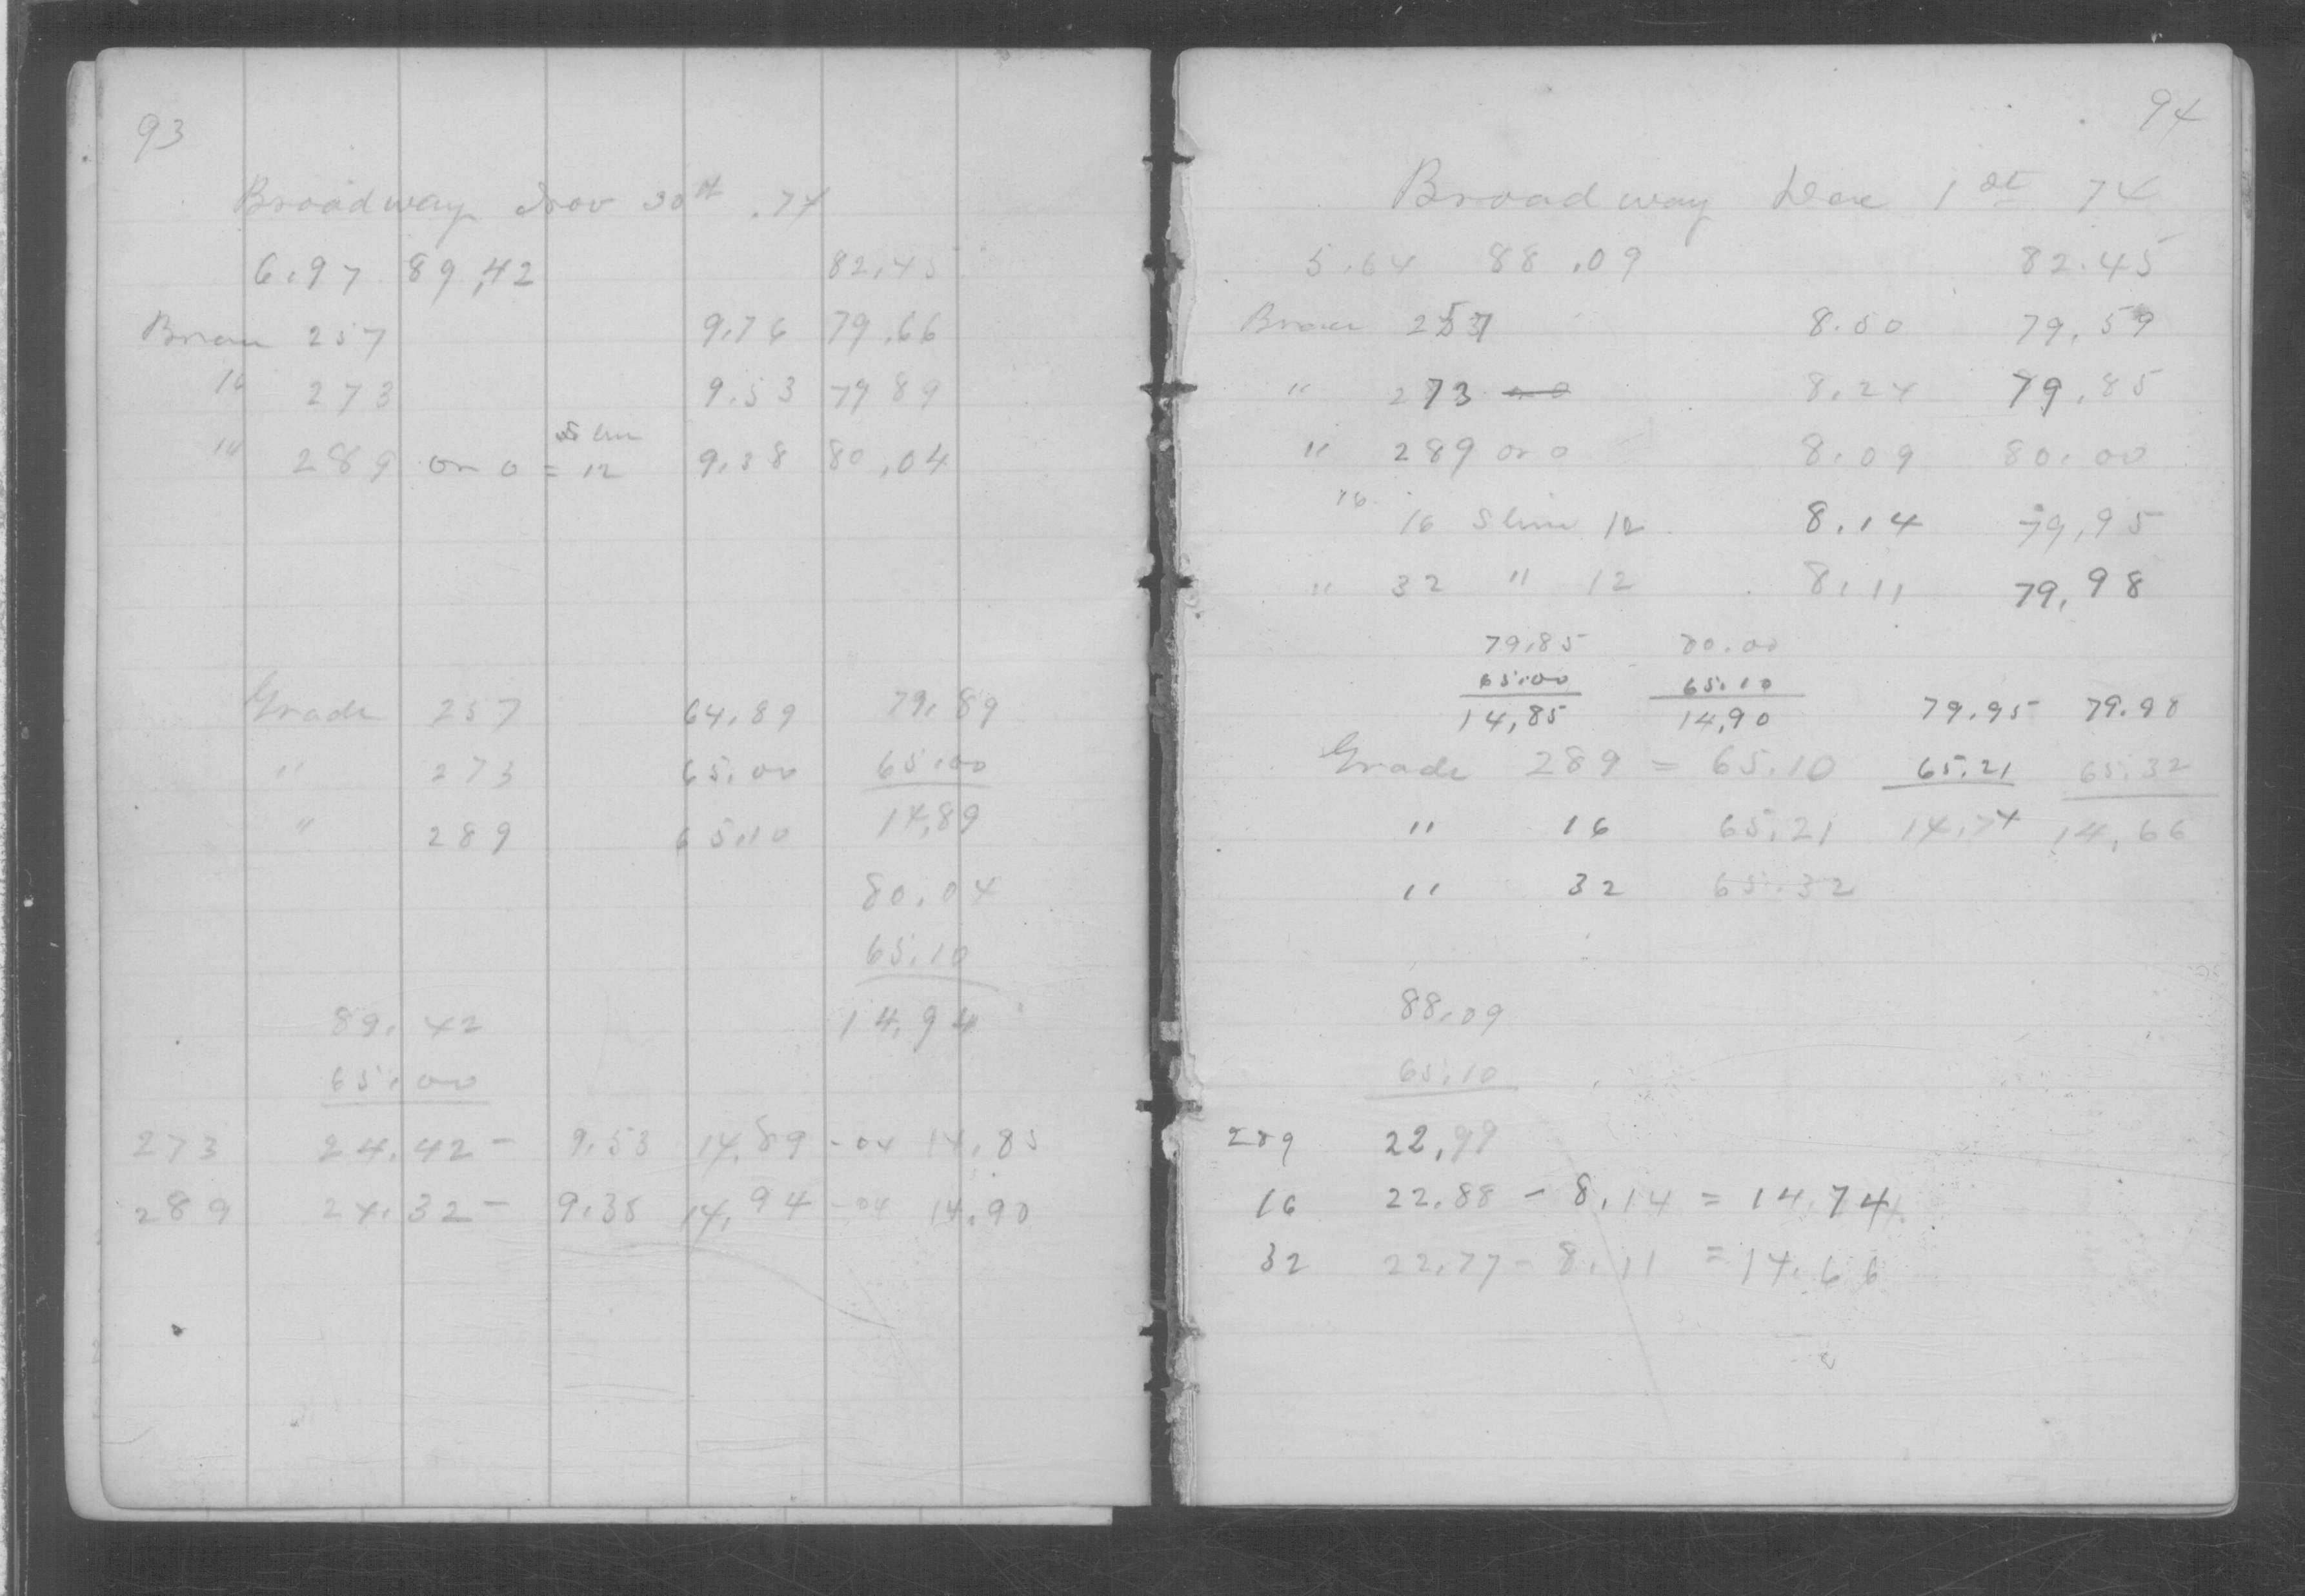 93
Broadway Nov 30th .74
6.97 89,42 82.45
257 9.76 79.66
16 273 9.53 79 89
" 289 or 0 = 12 9.38 80.04
Grade 257 64.89 79.89
" 273 65.00 65.00
" 289 65.10 14,89
80.04
65.10
89.42 14.94
65.00
273 24.42 - 9.53 14.89 -04 14.85
289 24.32 - 9.38 14.94 -04 14.90
94
Broadway Dec 1st 74
5.64 88.09 82.45
257 8.50 79.59
" 273 8.24 79.85
" 289 or 0 8.09 80.00
16 16 12 8.14 79.95
" 32 " 12 8.11 79.98
79.85 80.00
65.00 65.10
14,85 14,90 79.95 79.98
Grade 289 = 65.10 65.21 65.32
" 16 65.21 14.74 14.66
" 32 65.32
88.09
65.10
289 22.99
16 22.88 - 8.14 = 14.74
32 22.77 - 8.11 = 14.66